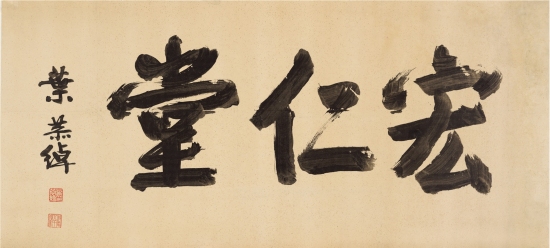 宏仁堂
葉恭綽